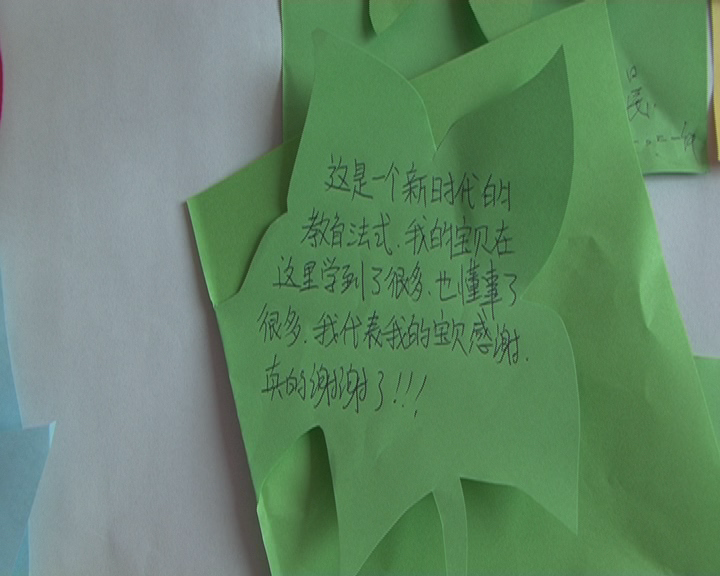 这是一个新时代的
教育法式.我的宝贝在
这里学到了很多.也懂事了
很多.我代表我的宝贝感谢.
真的谢谢了!!!